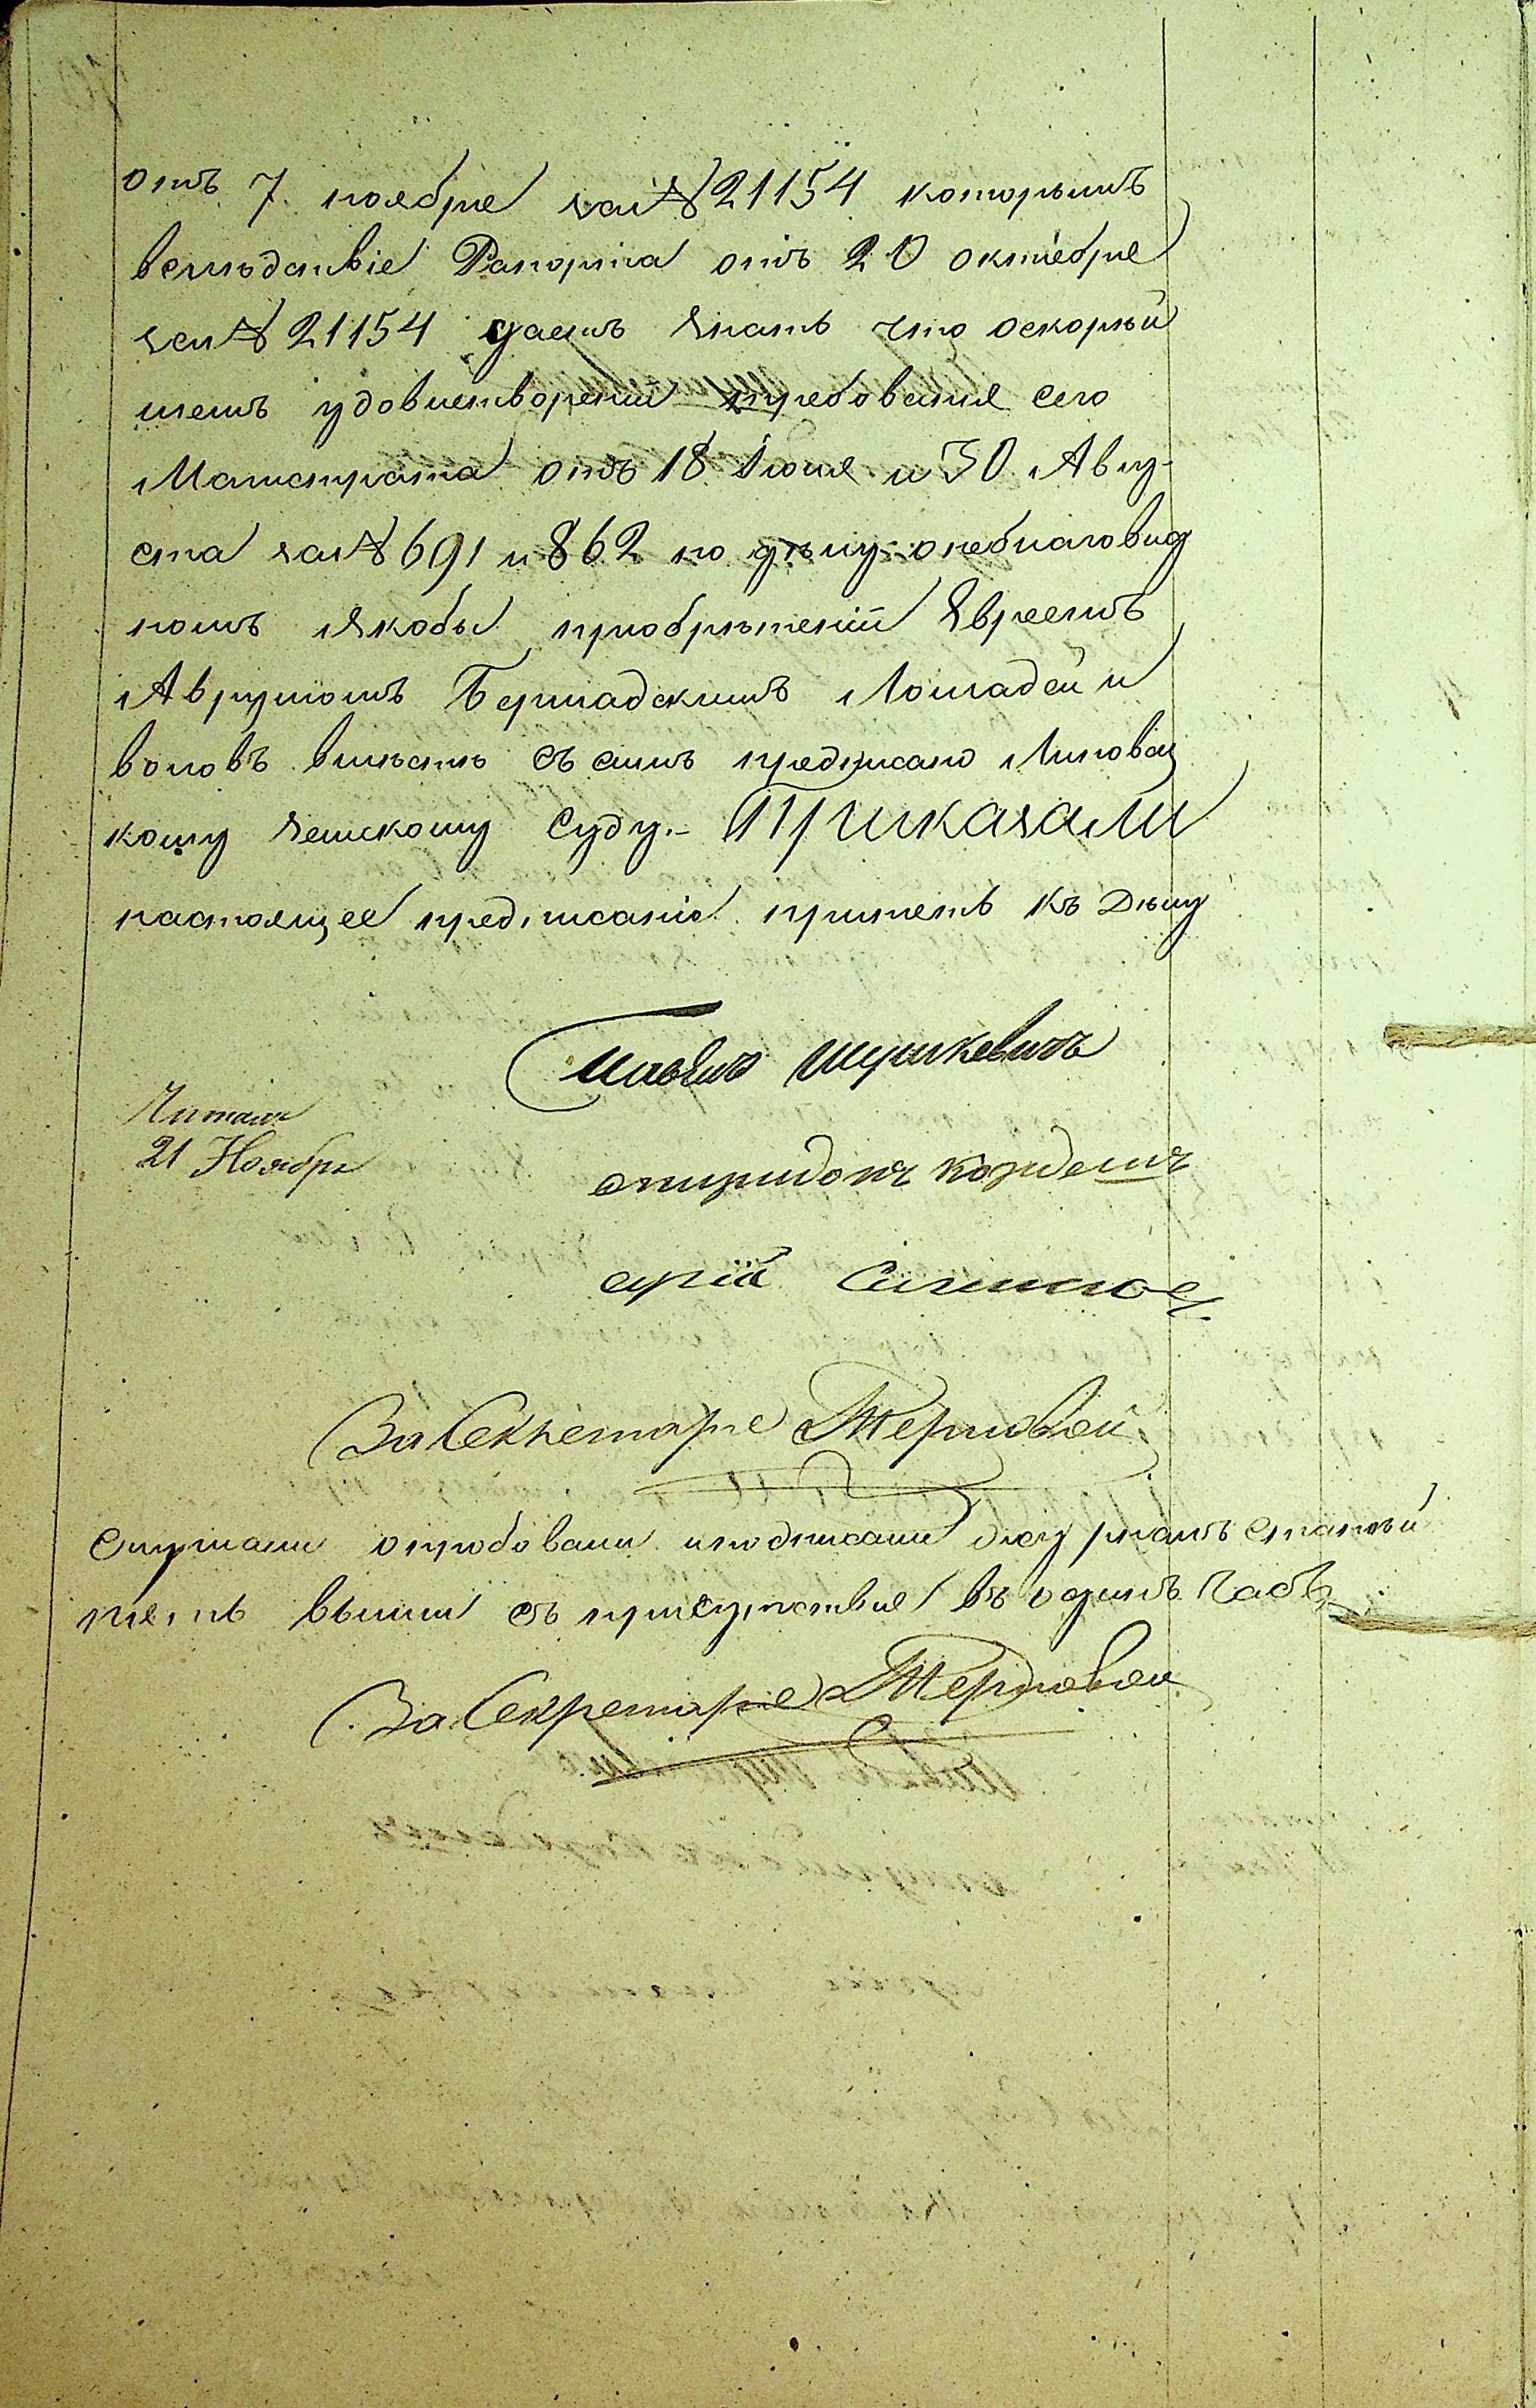 отъ 7 ноября за № 21154 которымъ
вслѣдствіе Рапорта отъ 20 октебря
за № 21154 даетъ знать что оскорѣй
шемъ удовлетвореніи требованія сего
Магистрата отъ 18 Іюня и 30 Авгу-
ста за № 691 и 862 по делу онеблаговид
номъ якобы приобрѣтеніи Евреемъ
Аврумомъ Бершадскимъ Лошадей и
воловъ вмѣстѣ съ симъ предписано Липовец
кому земскому Суду.- Приказали
настоящее предписаніе принять къ Дѣлу
Павелъ Шушкевичъ
Читалъ
21 Ноября
спиридонъ
За Секретаря Терновой
Слушали опробовали иподписали журналъ
вышли съ присутствія въ одинъ часъ
За Секретаря Терновой